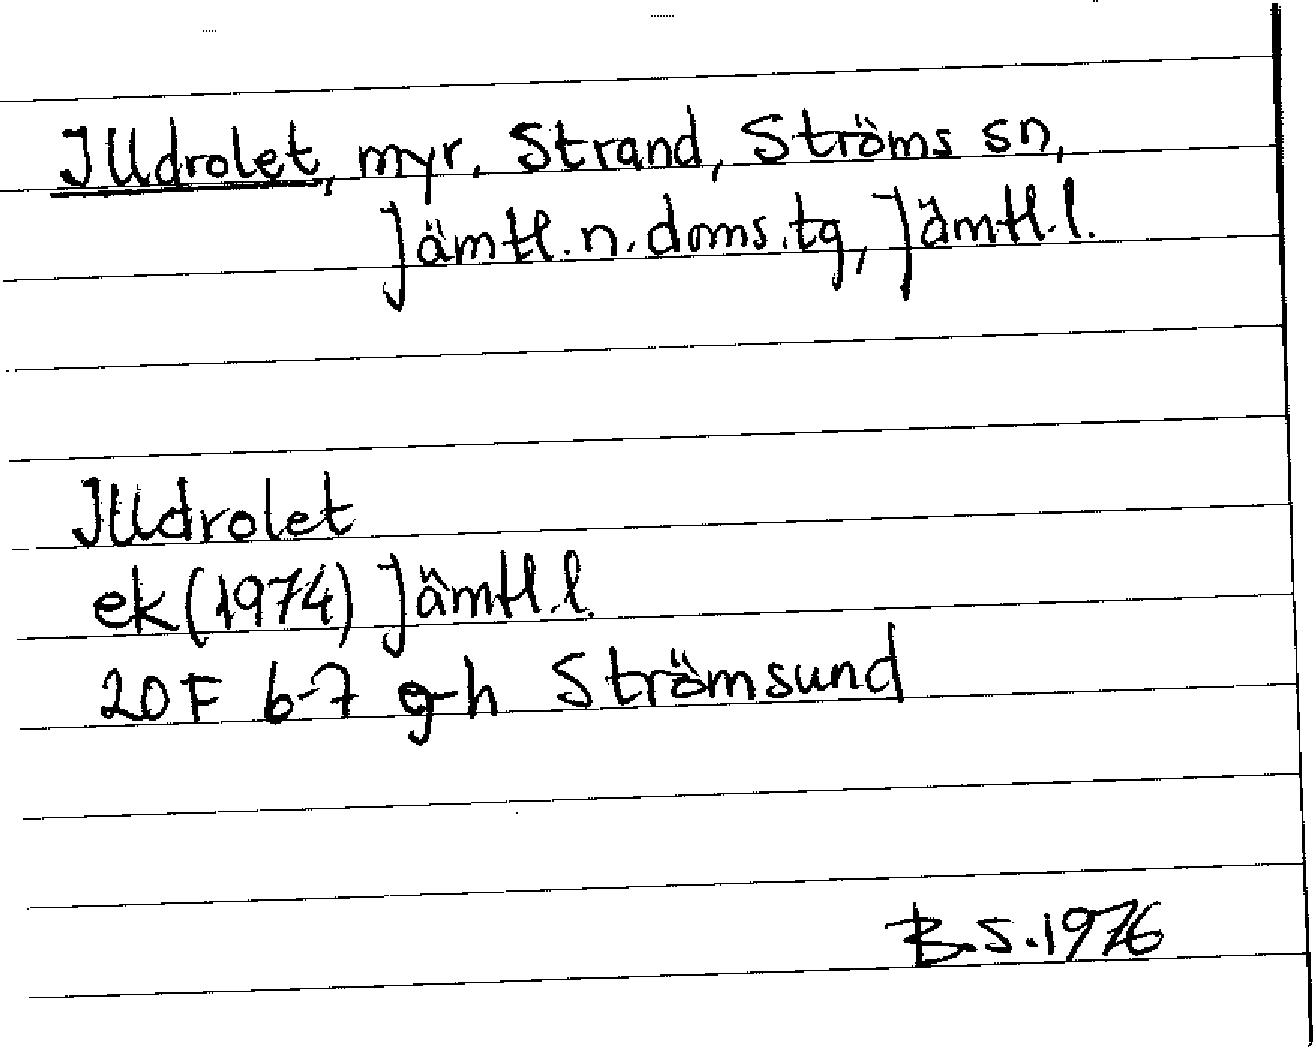 Illdrolet, myr, Strand, Ströms sn,
Jämtl. n. doms. tg, Jämtl. l.
Illdrolet
ek (1974) Jämtl. l.
20 F 6-7 g-h Strömsund
B.S. 1976